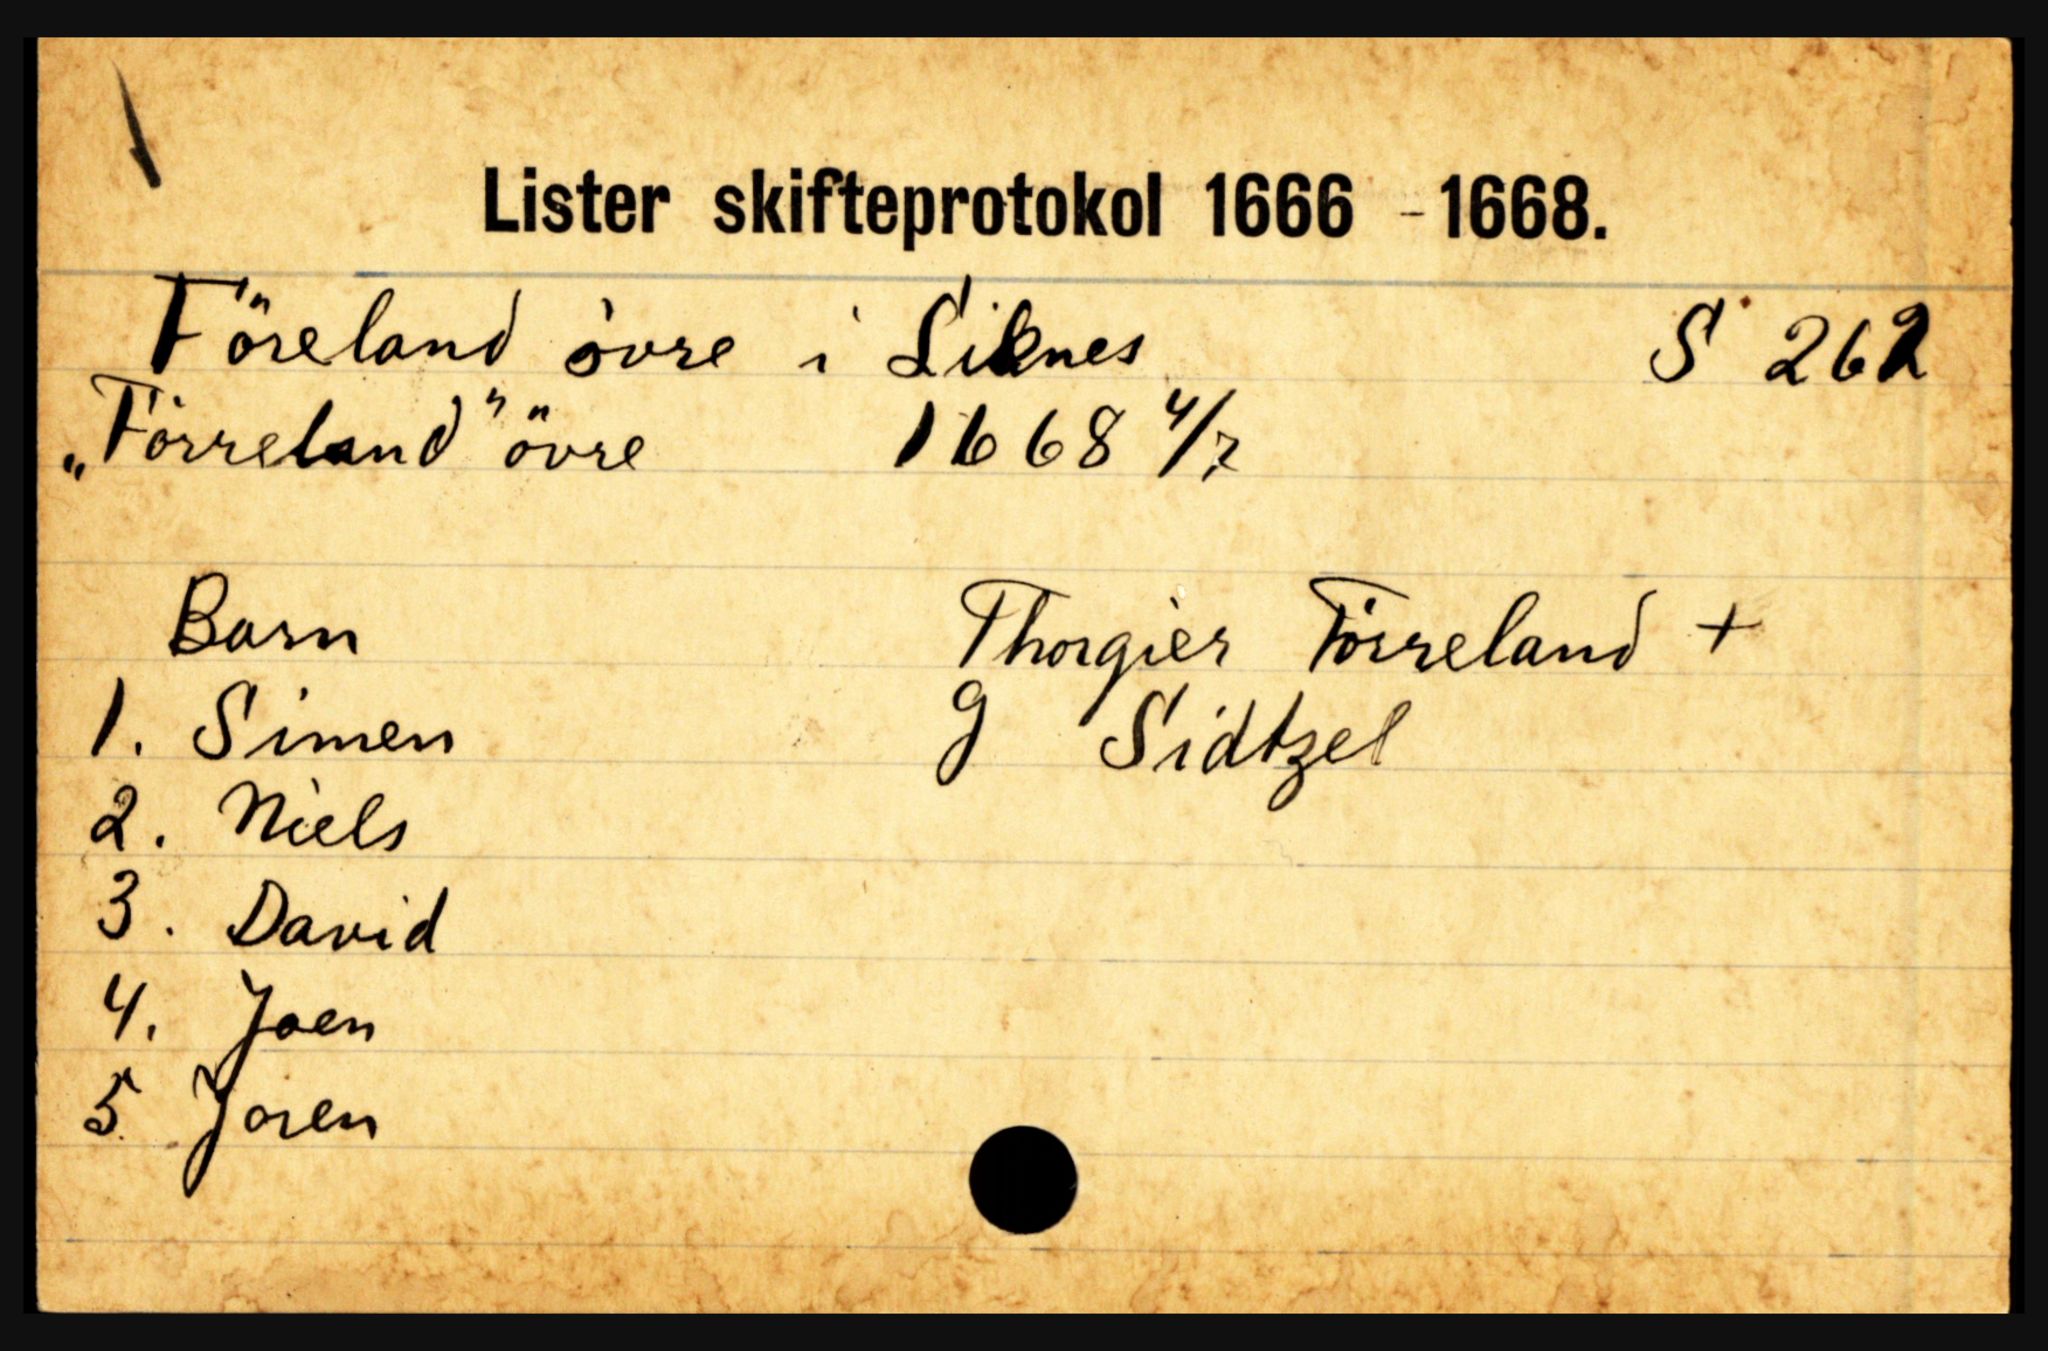 Lister skifteprotokol 1666 - 1668.
Föreland övre i Liknes S 262
„Förreland" övre 1668 4/7
Barn Thorgier Förreland +
1. Simen g Sidtzel
2. Niels
3. David
4. Joen
5. Joren